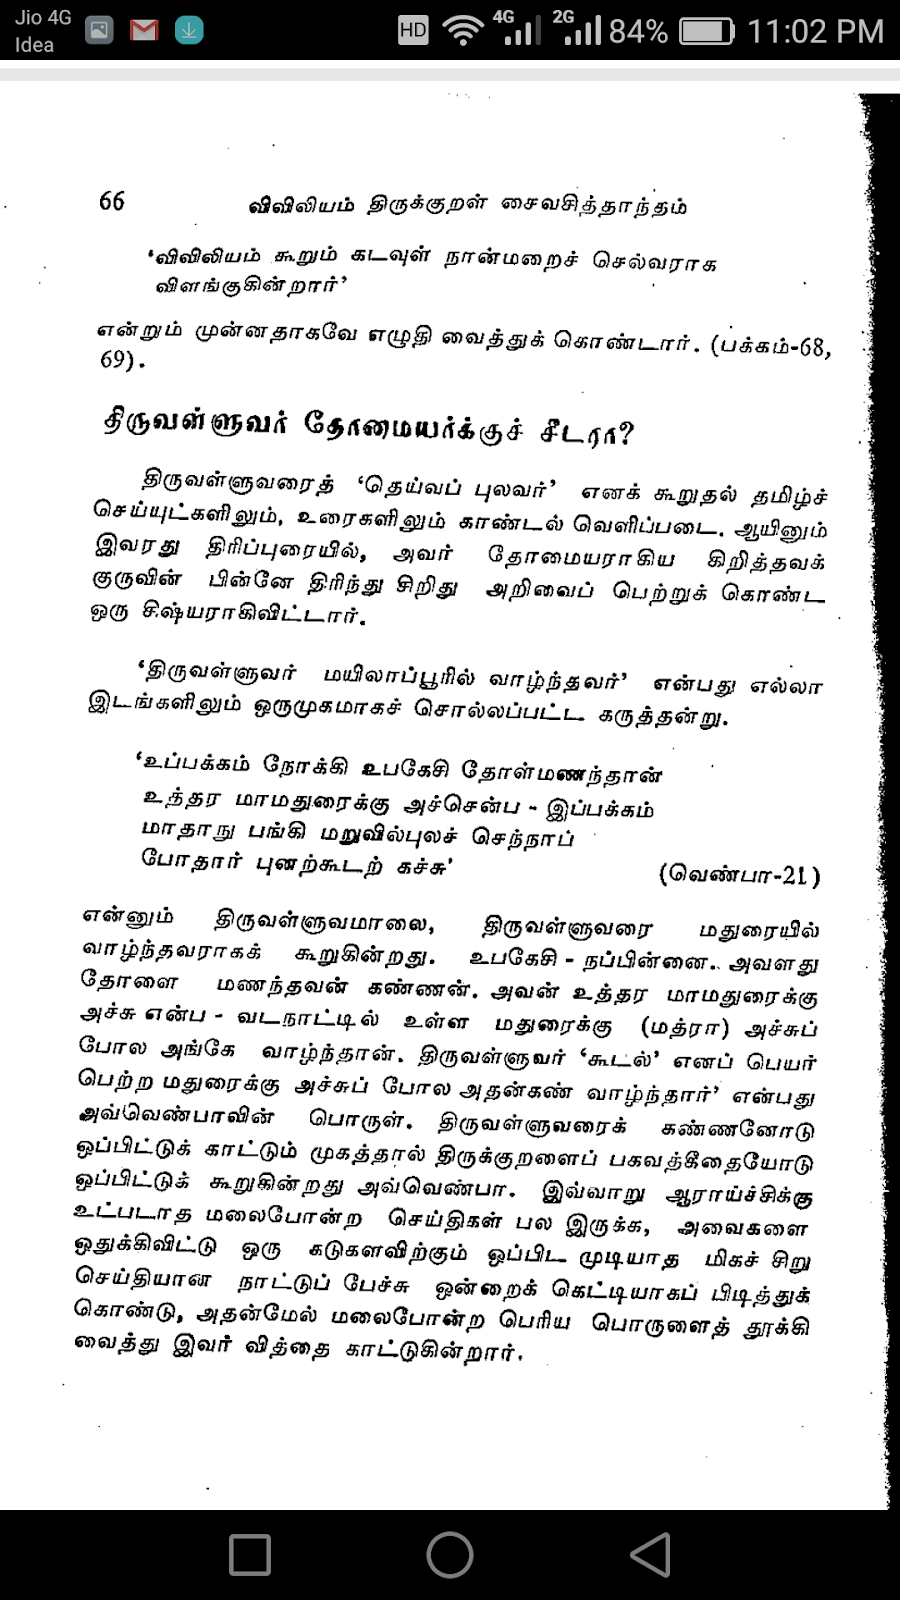 Jio 4G
Idea
HD 4G 2G 84% 11:02 PM
66 விவிலியம் திருக்குறள் சைவசித்தாந்தம்
‘விவிலியம் கூறும் கடவுள் நான்மறைச் செல்வராக
விளங்குகின்றார்’
என்றும் முன்னதாகவே எழுதி வைத்துக் கொண்டார். (பக்கம்-68,
69).
திருவள்ளுவர் தோமையர்க்குச் சீடரா?
திருவள்ளுவரைத் ‘தெய்வப் புலவர்’ எனக் கூறுதல் தமிழ்ச்
செய்யுட்களிலும், உரைகளிலும் காண்டல் வெளிப்படை. ஆயினும்
இவரது திரிப்புரையில், அவர் தோமையராகிய கிறித்தவக்
குருவின் பின்னே திரிந்து சிறிது அறிவைப் பெற்றுக் கொண்ட
ஒரு சிஷ்யராகிவிட்டார்.
‘திருவள்ளுவர் மயிலாப்பூரில் வாழ்ந்தவர்’ என்பது எல்லா
இடங்களிலும் ஒருமுகமாகச் சொல்லப்பட்ட கருத்தன்று.
‘உப்பக்கம் நோக்கி உபகேசி தோள்மணந்தான்
உந்தர மாமதுரைக்கு அச்சென்ப - இப்பக்கம்
மாதாநு பங்கி மறுவில்புலச் செந்நாப்
போதார் புனற்கூடற் கச்சு’ (வெண்பா-21)
என்னும் திருவள்ளுவமாலை, திருவள்ளுவரை மதுரையில்
வாழ்ந்தவராகக் கூறுகின்றது. உபகேசி - நப்பின்னை. அவளது
தோளை மணந்தவன் கண்ணன். அவன் உத்தர மாமதுரைக்கு
அச்சு என்ப - வடநாட்டில் உள்ள மதுரைக்கு (மத்ரா) அச்சுப்
போல அங்கே வாழ்ந்தான். திருவள்ளுவர் ‘கூடல்’ எனப் பெயர்
பெற்ற மதுரைக்கு அச்சுப் போல அதன்கண் வாழ்ந்தார்’ என்பது
அவ்வெண்பாவின் பொருள். திருவள்ளுவரைக் கண்ணனோடு
ஒப்பிட்டுக் காட்டும் முகத்தால் திருக்குறளைப் பகவற்கீதையோடு
ஒப்பிட்டுக் கூறுகின்றது அவ்வெண்பா. இவ்வாறு ஆராய்ச்சிக்கு
உட்படாத மலைபோன்ற செய்திகள் பல இருக்க, அவைகளை
ஒதுக்கிவிட்டு ஒரு கடுகளவிற்கும் ஒப்பிட முடியாத மிகச் சிறு
செய்தியான நாட்டுப் பேச்சு ஒன்றைக் கெட்டியாகப் பிடித்துக்
கொண்டு, அதன்மேல் மலைபோன்ற பெரிய பொருளைத் தூக்கி
வைத்து இவர் வித்தை காட்டுகின்றார்.